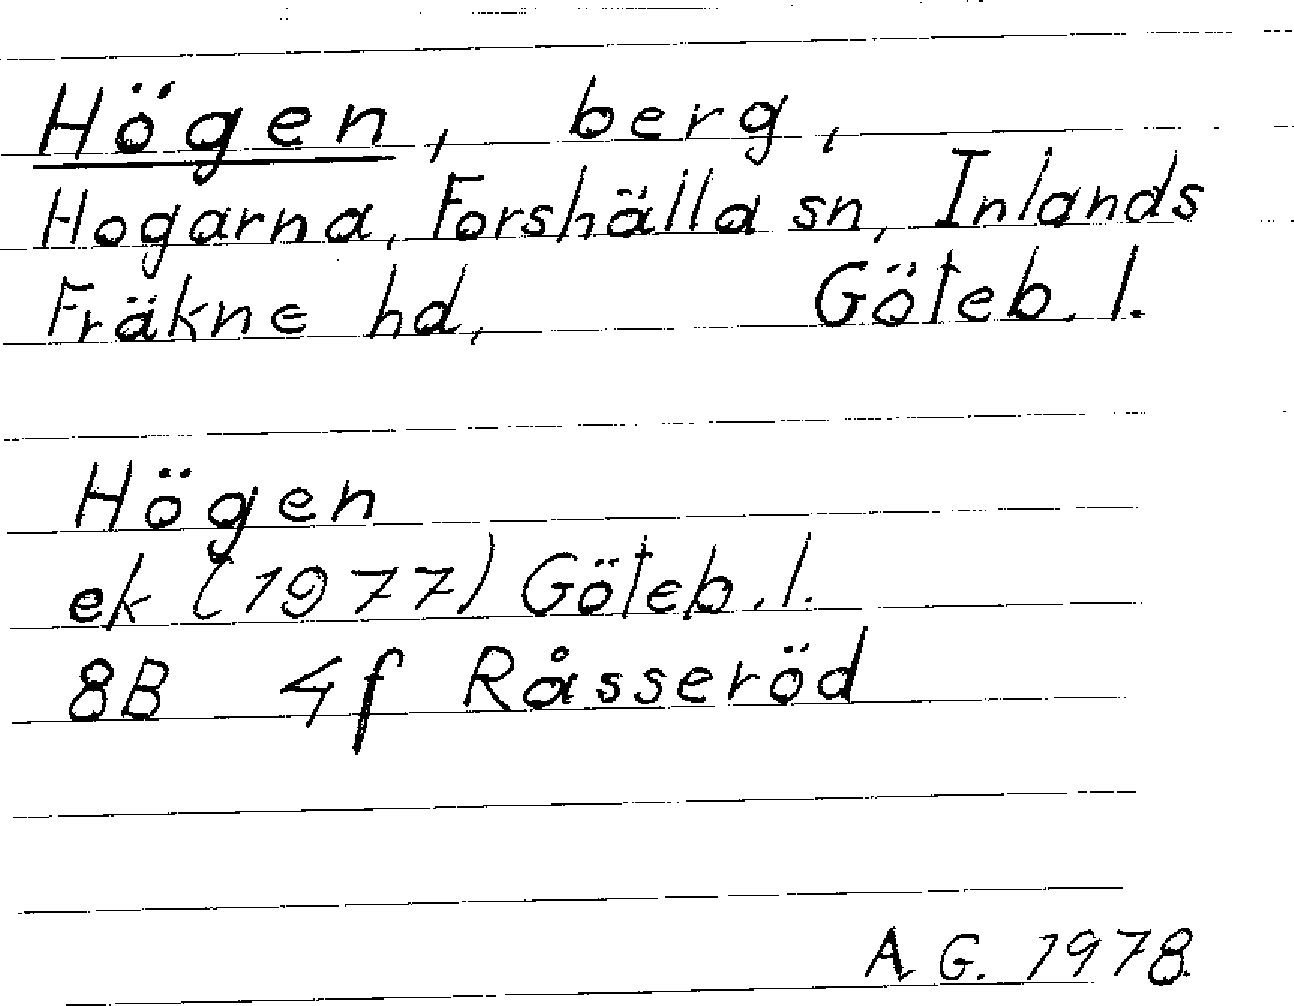 Högen, berg,
Hogarna, Forshälla sn, Inlands
Fräkne hd, Göteb. l.
Högen
ek (1977) Göteb. l.
8B 4f Råsseröd
A. G. 1978.